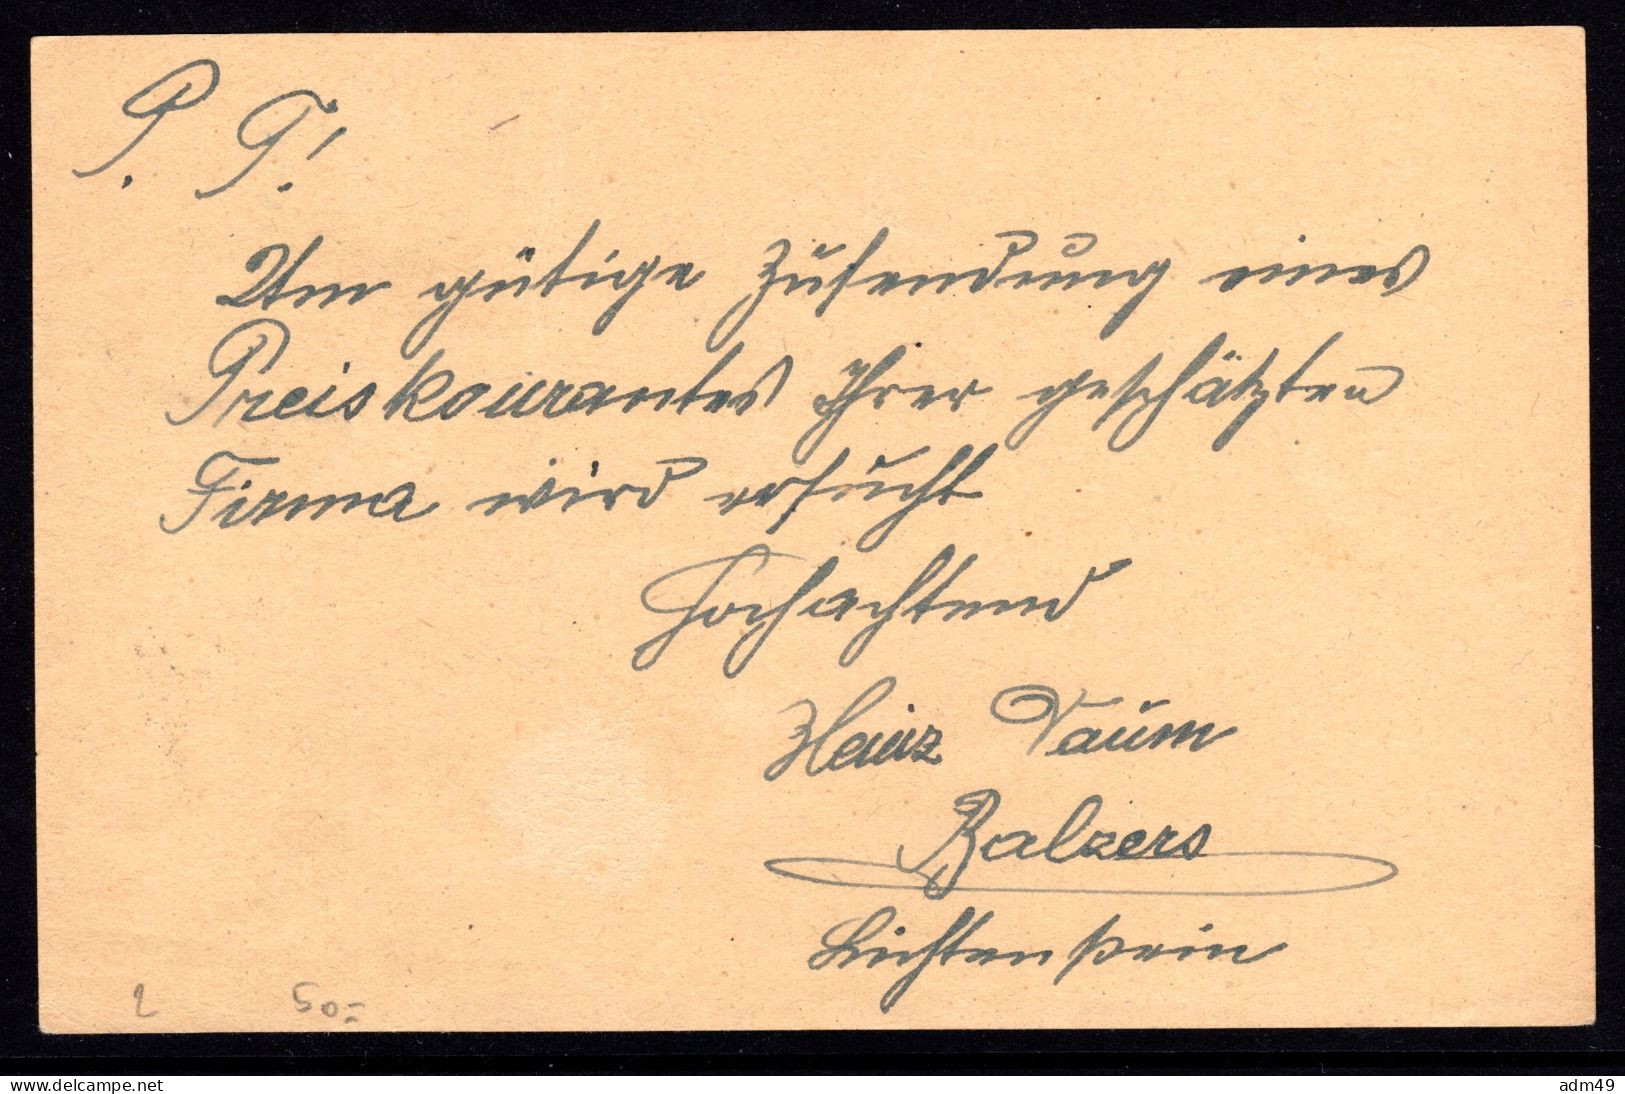 P. T!
Um gütige Zusendung eines
Preiskourantes Ihrer geschätzten
Firma wird ersucht
Hochachtend
Heinz
Balzers
Liechtenstein
2 50.-
adm49